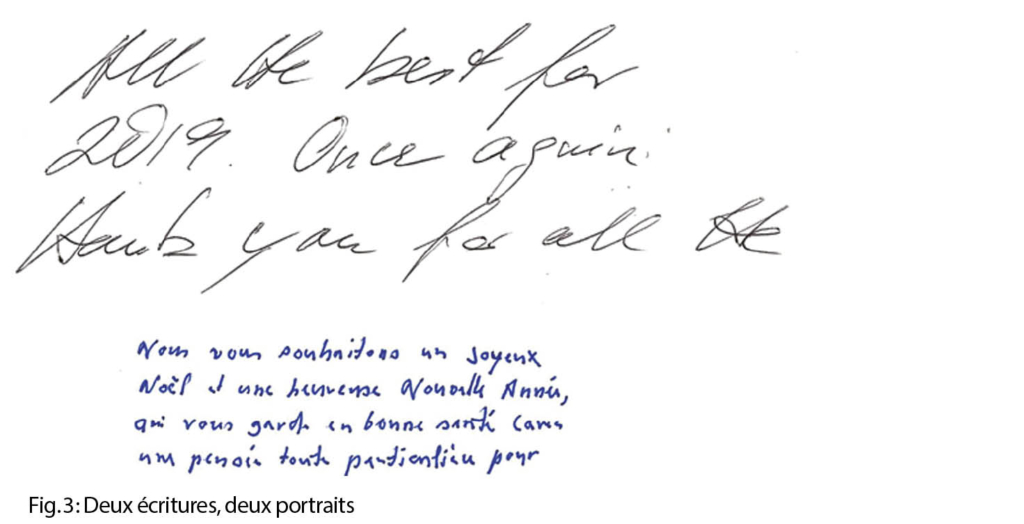 All the best for
2019. Once again
thank you for all the
Nous vous souhaitons un joyeux
Noël et une heureuse Nouvelle Année,
qui vous garde en bonne santé avec
une pensée toute particulière pour
Fig.3: Deux écritures, deux portraits